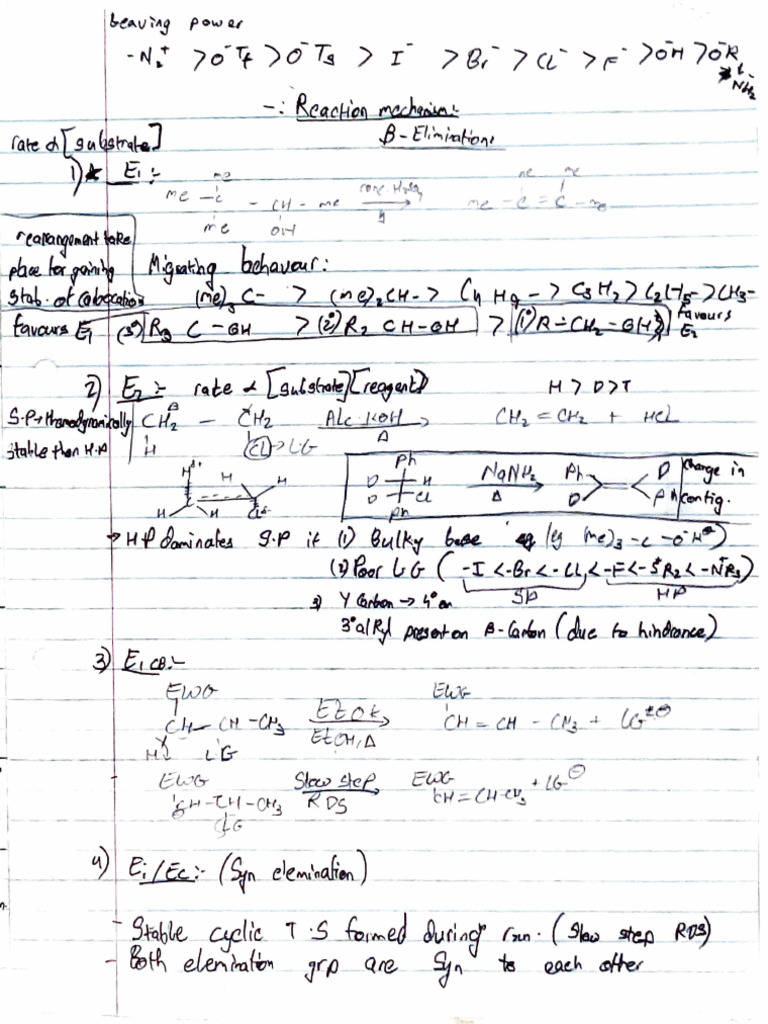 leaving power
-N₂⁺ > O⁻Tf > O⁻Ts > I⁻ > Br⁻ > Cl⁻ > F⁻ > O⁻H > O⁻R >
NH₂
-: Reaction mechanism:-
rate α [substrate]
β-Elimination:
1) * E₁ :-
me me me
me - C - CH - me conc. H₂SO₄ me - C = C - me
me OH Δ
rearrangement take
place for gaining
Stab. of Cabocation
Migrating behavour:
(me)₃ C- > (me)₂CH- > C₄H₉ -> C₃H₇ > C₂H₅- > CH₃-
favours E₁ (3°) R₃ C - OH > (2°) R₂ CH-OH > (1°) R-CH₂-OH favours E₂
2) E₂ :- rate α [substrate][reagent] H > D > T
S.P → thermodynamically
stable than H.P
CH₂ - CH₂ Alc. KOH CH₂ = CH₂ + HCl
H Cl → L.G Δ
H H H H H Cl
Ph
D H
D Cl
Ph
NaNH₂
Δ
Ph D
D Ph
change in
config.
→ H.P dominates S.P if (1) Bulky base (eg (me)₃ - C - O⁻ K⁺)
(2) Poor L.G (-I < -Br < -Cl < -F < -S⁺R₂ < -N⁺R₃)
SP HP
3) γ Carbon → 4° or
3° alkyl present on β-Carbon (due to hindrance)
3) E₁CB:-
EWG EWG
CH - CH - CH₃ EtOK CH = CH - CH₃ + LG⁻
H LG EtOH, Δ
EWG Slow step EWG
CH - CH - CH₃ RDS CH = CH-CH₃ + LG⁻
LG
4) Ei/Ec:- (Syn elemination)
- Stable cyclic T.S formed during rxn. (Slow step RDS)
- Both elemination grp are Syn to each other